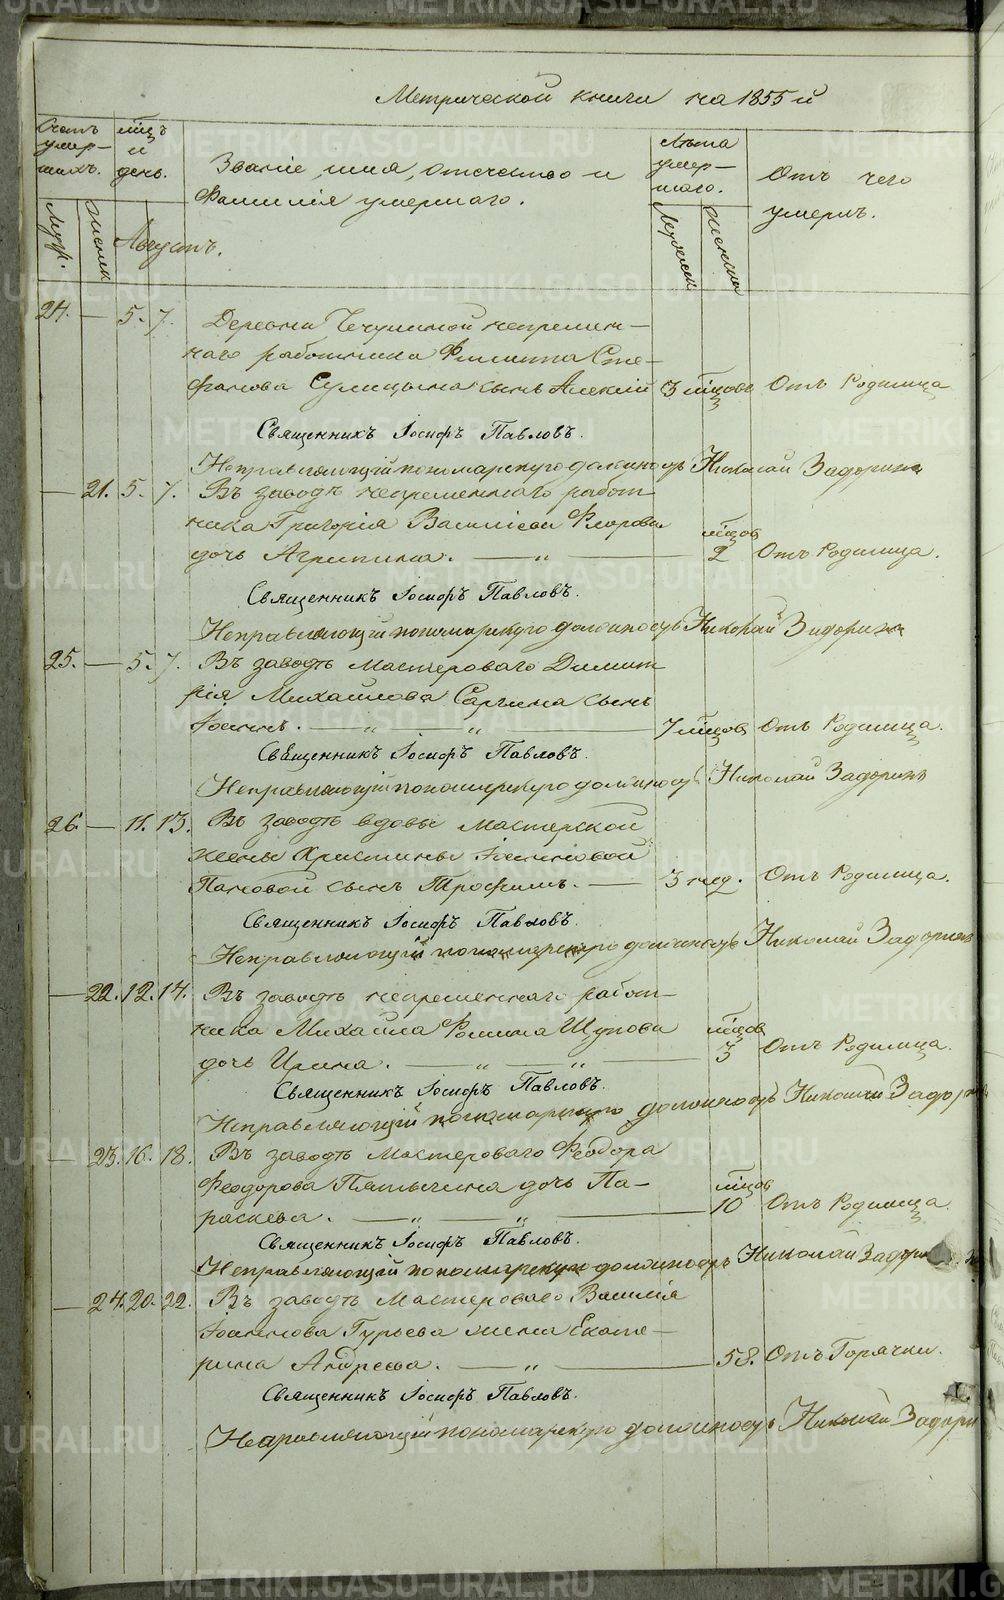 Метрической книги на 1855 й
Счетъ умер-шихъ.
мцъ и день.
Званіе, имя, отечество и
Фамилія умершаго.
Лѣта умер-шаго.
Отъ чего
умеръ.
Муж. Женск Августъ. Мужеск Женска
24. — 5. 7. Деревни Чечулиной непремен-
наго работника Филиппа Сте-
фанова Сулицына сынъ Алексій 3 мцовъ Отъ Родимца
Священникъ Іосифъ Павловъ.
Исправляющій пономарскую должность Николай Задоринъ
— 21. 5. 7. Въ заводѣ непременнаго работ-
ника Григорія Василіева Флорова
дочь Агрипина. — „ — мцов 2 Отъ Родимца.
Священникъ Іосифъ Павловъ.
Исправляющій пономарскую должность Николай Задоринъ
25. — 5. 7. Въ заводѣ мастероваго Димит-
рія Михайлова Саргина сынъ
Іоаннъ. — „ — „ — 7 мцовъ Отъ Родимца.
Священникъ Іосифъ Павловъ.
Исправляющій пономарскую должность Николай Задоринъ
26. — 11. 13. Въ заводѣ вдовы мастерской
жены Христины Іоанновой
Пановой сынъ Трофимъ. — 3 нед. Отъ Родимца.
Священникъ Іосифъ Павловъ.
Исправляющій пономарскую должность Николай Задоринъ
— 22. 12. 14. Въ заводѣ непременнаго работ-
ника Михаила Фомина Щупова
дочь Ирина. — „ — „ — мцов 3 Отъ Родимца.
Священникъ Іосифъ Павловъ.
Исправляющій пономарскую должность Николай Задорин
— 23. 16. 18. Въ заводѣ мастероваго Феодора
Феодорова Пятычина дочь Па-
раскева. — „ — „ — мцов 10 Отъ Родимца.
Священникъ Іосифъ Павловъ.
Исправляющій пономарскую должность Николай Задорин
— 24. 20. 22. Въ заводѣ мастероваго Василія
Іоаннова Гурьева жена Екате-
рина Андреева. — „ — 58. Отъ Горячки.
Священникъ Іосифъ Павловъ.
Исправляющій пономарскую должность Николай Задорин
METRIKI.GASO-URAL.RU